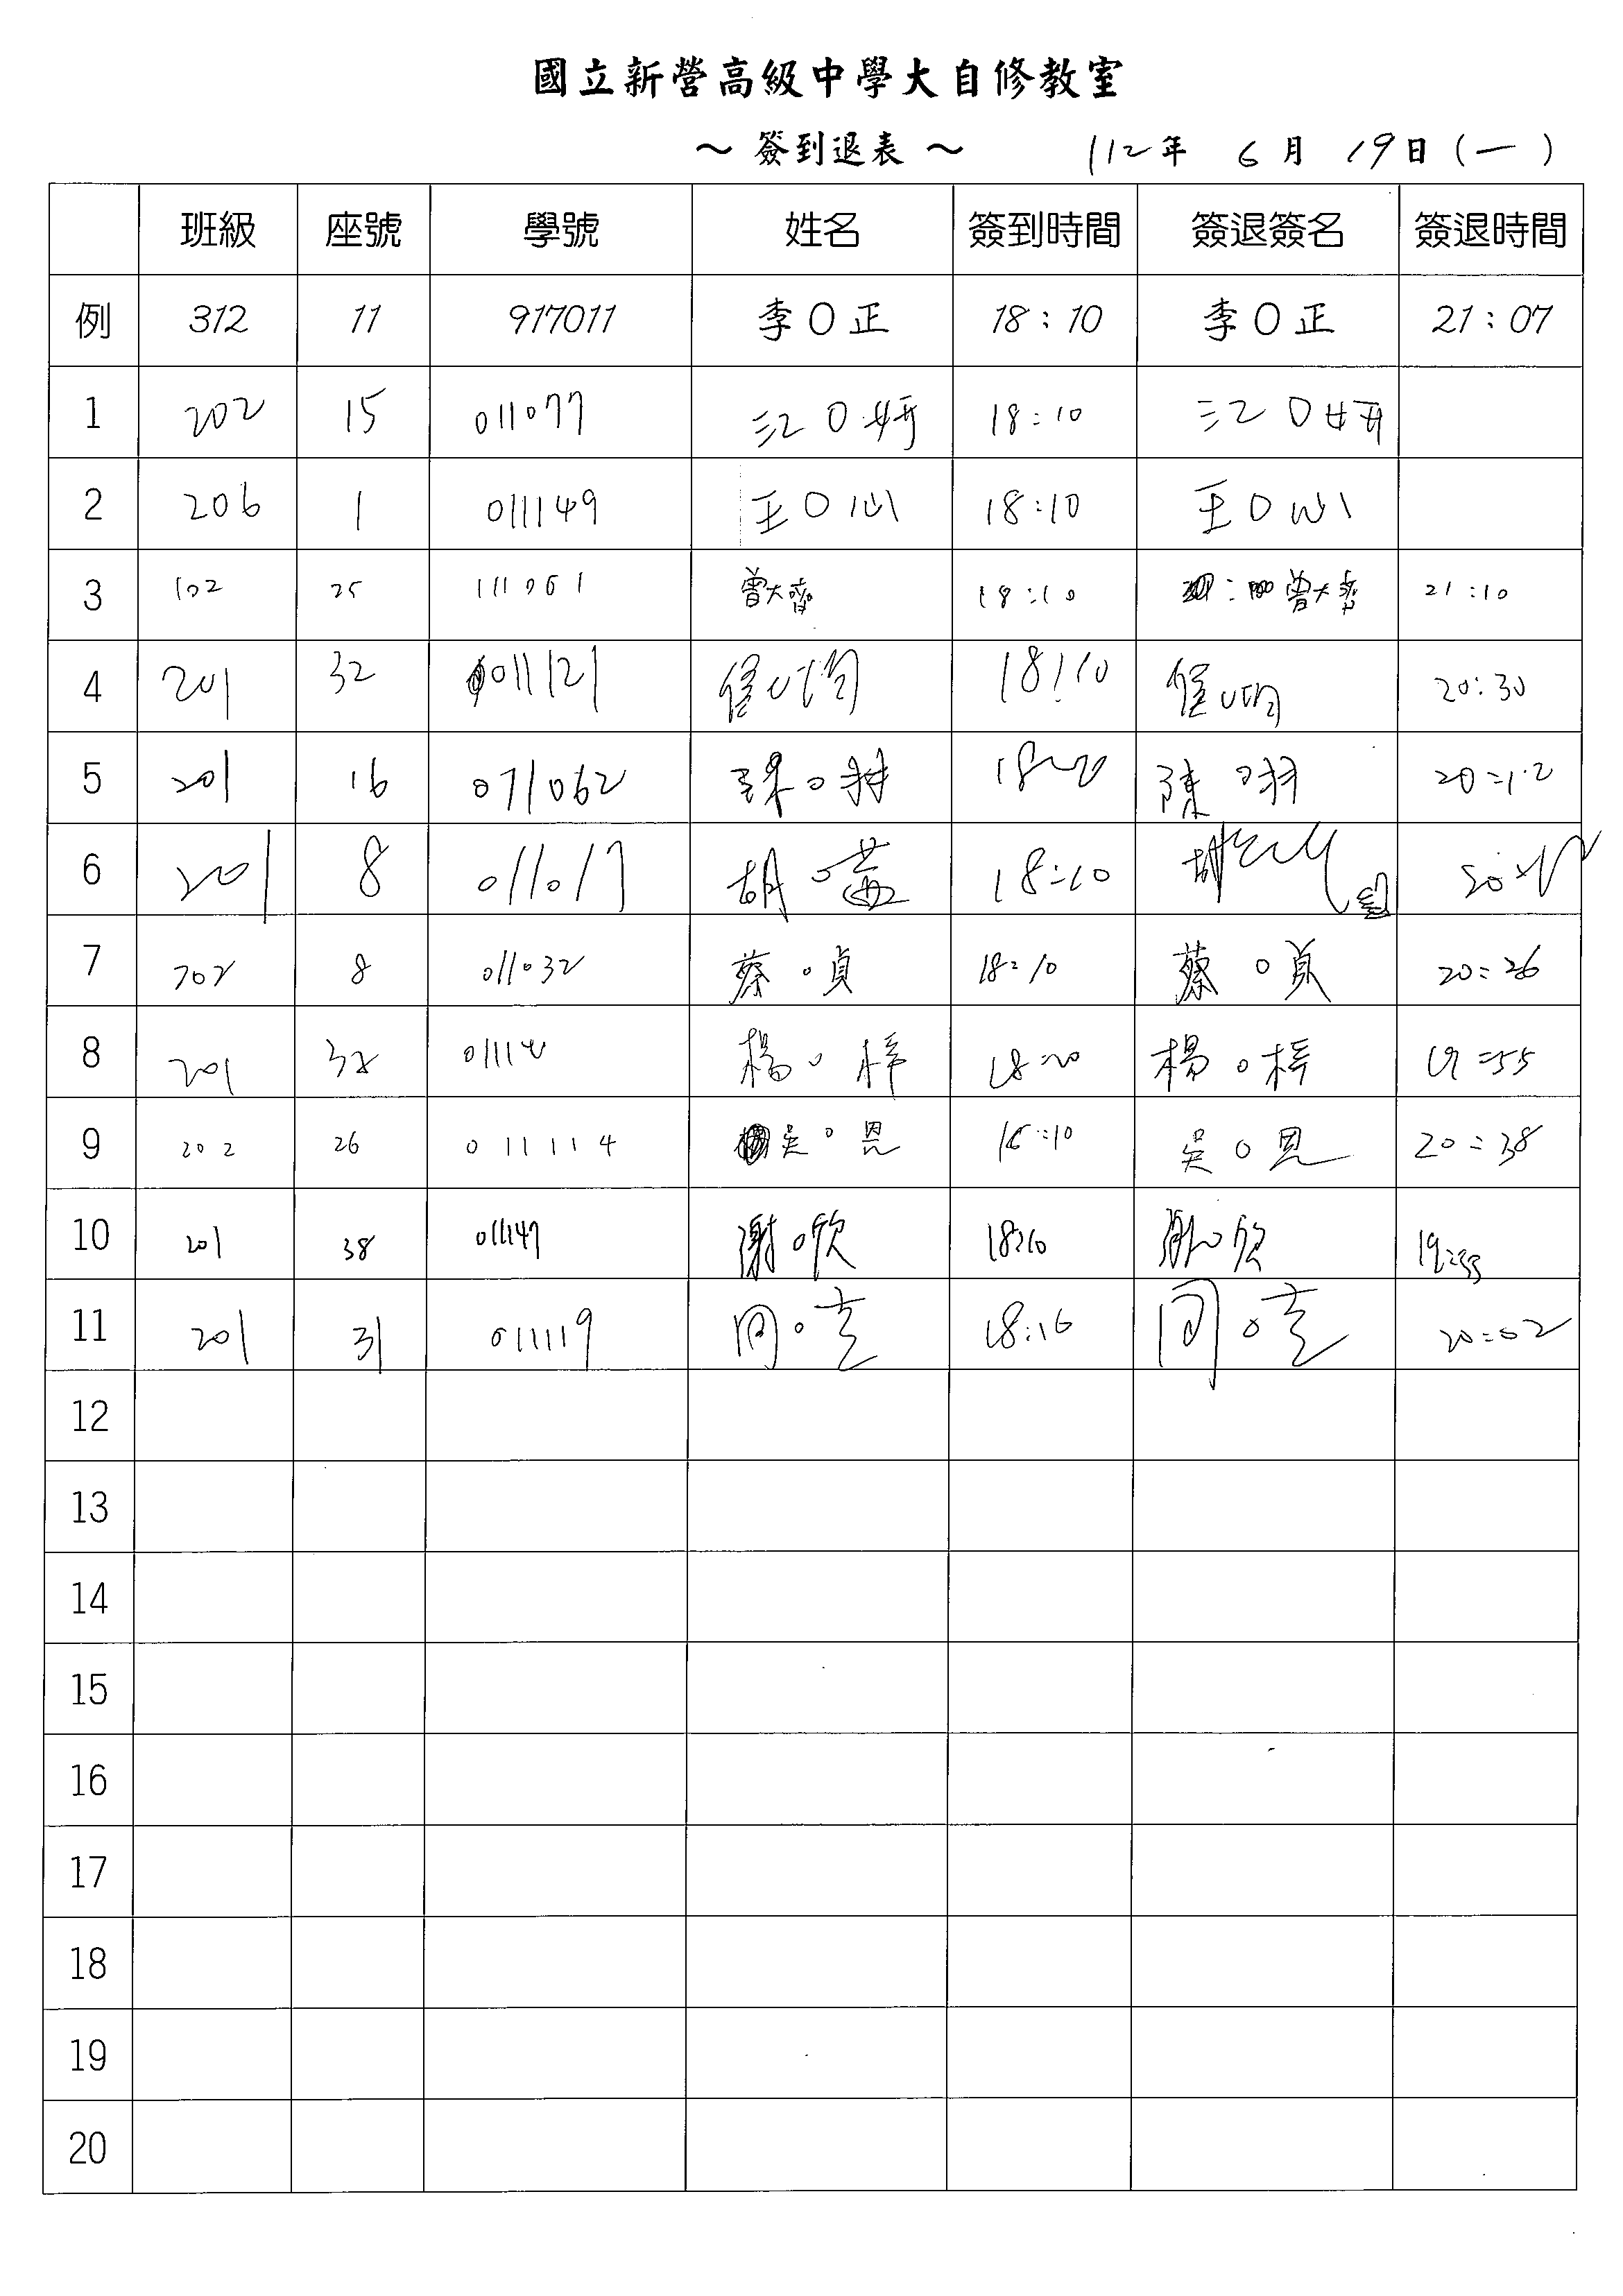 國立新營高級中學大自修教室
～ 簽到退表 ～ 112年 6月 19日(一)
班級 座號 學號 姓名 簽到時間 簽退簽名 簽退時間
例 312 11 917011 李O正 18:10 李O正 21:07
1 202 15 011077 江O妍 18:10 江O妍
2 206 1 011149 王O心 18:10 王O心
3 102 25 111061 曾大齊 18:10 曾大齊 21:10
4 201 32 011121 18:10 20:30
5 201 16 071062 陳O羽 20:12
6 201 8 011017 胡O茜 18:10
7 202 8 011032 蔡O貞 18:10 蔡O貞 20:26
8 201 楊O梓 18:20 楊O梓 19:55
9 202 26 011114 吳O恩 18:10 吳O恩 20:38
10 201 38 011147 謝O欣 18:10 謝O欣 19:55
11 201 31 011119 18:16 20:02
12
13
14
15
16
17
18
19
20